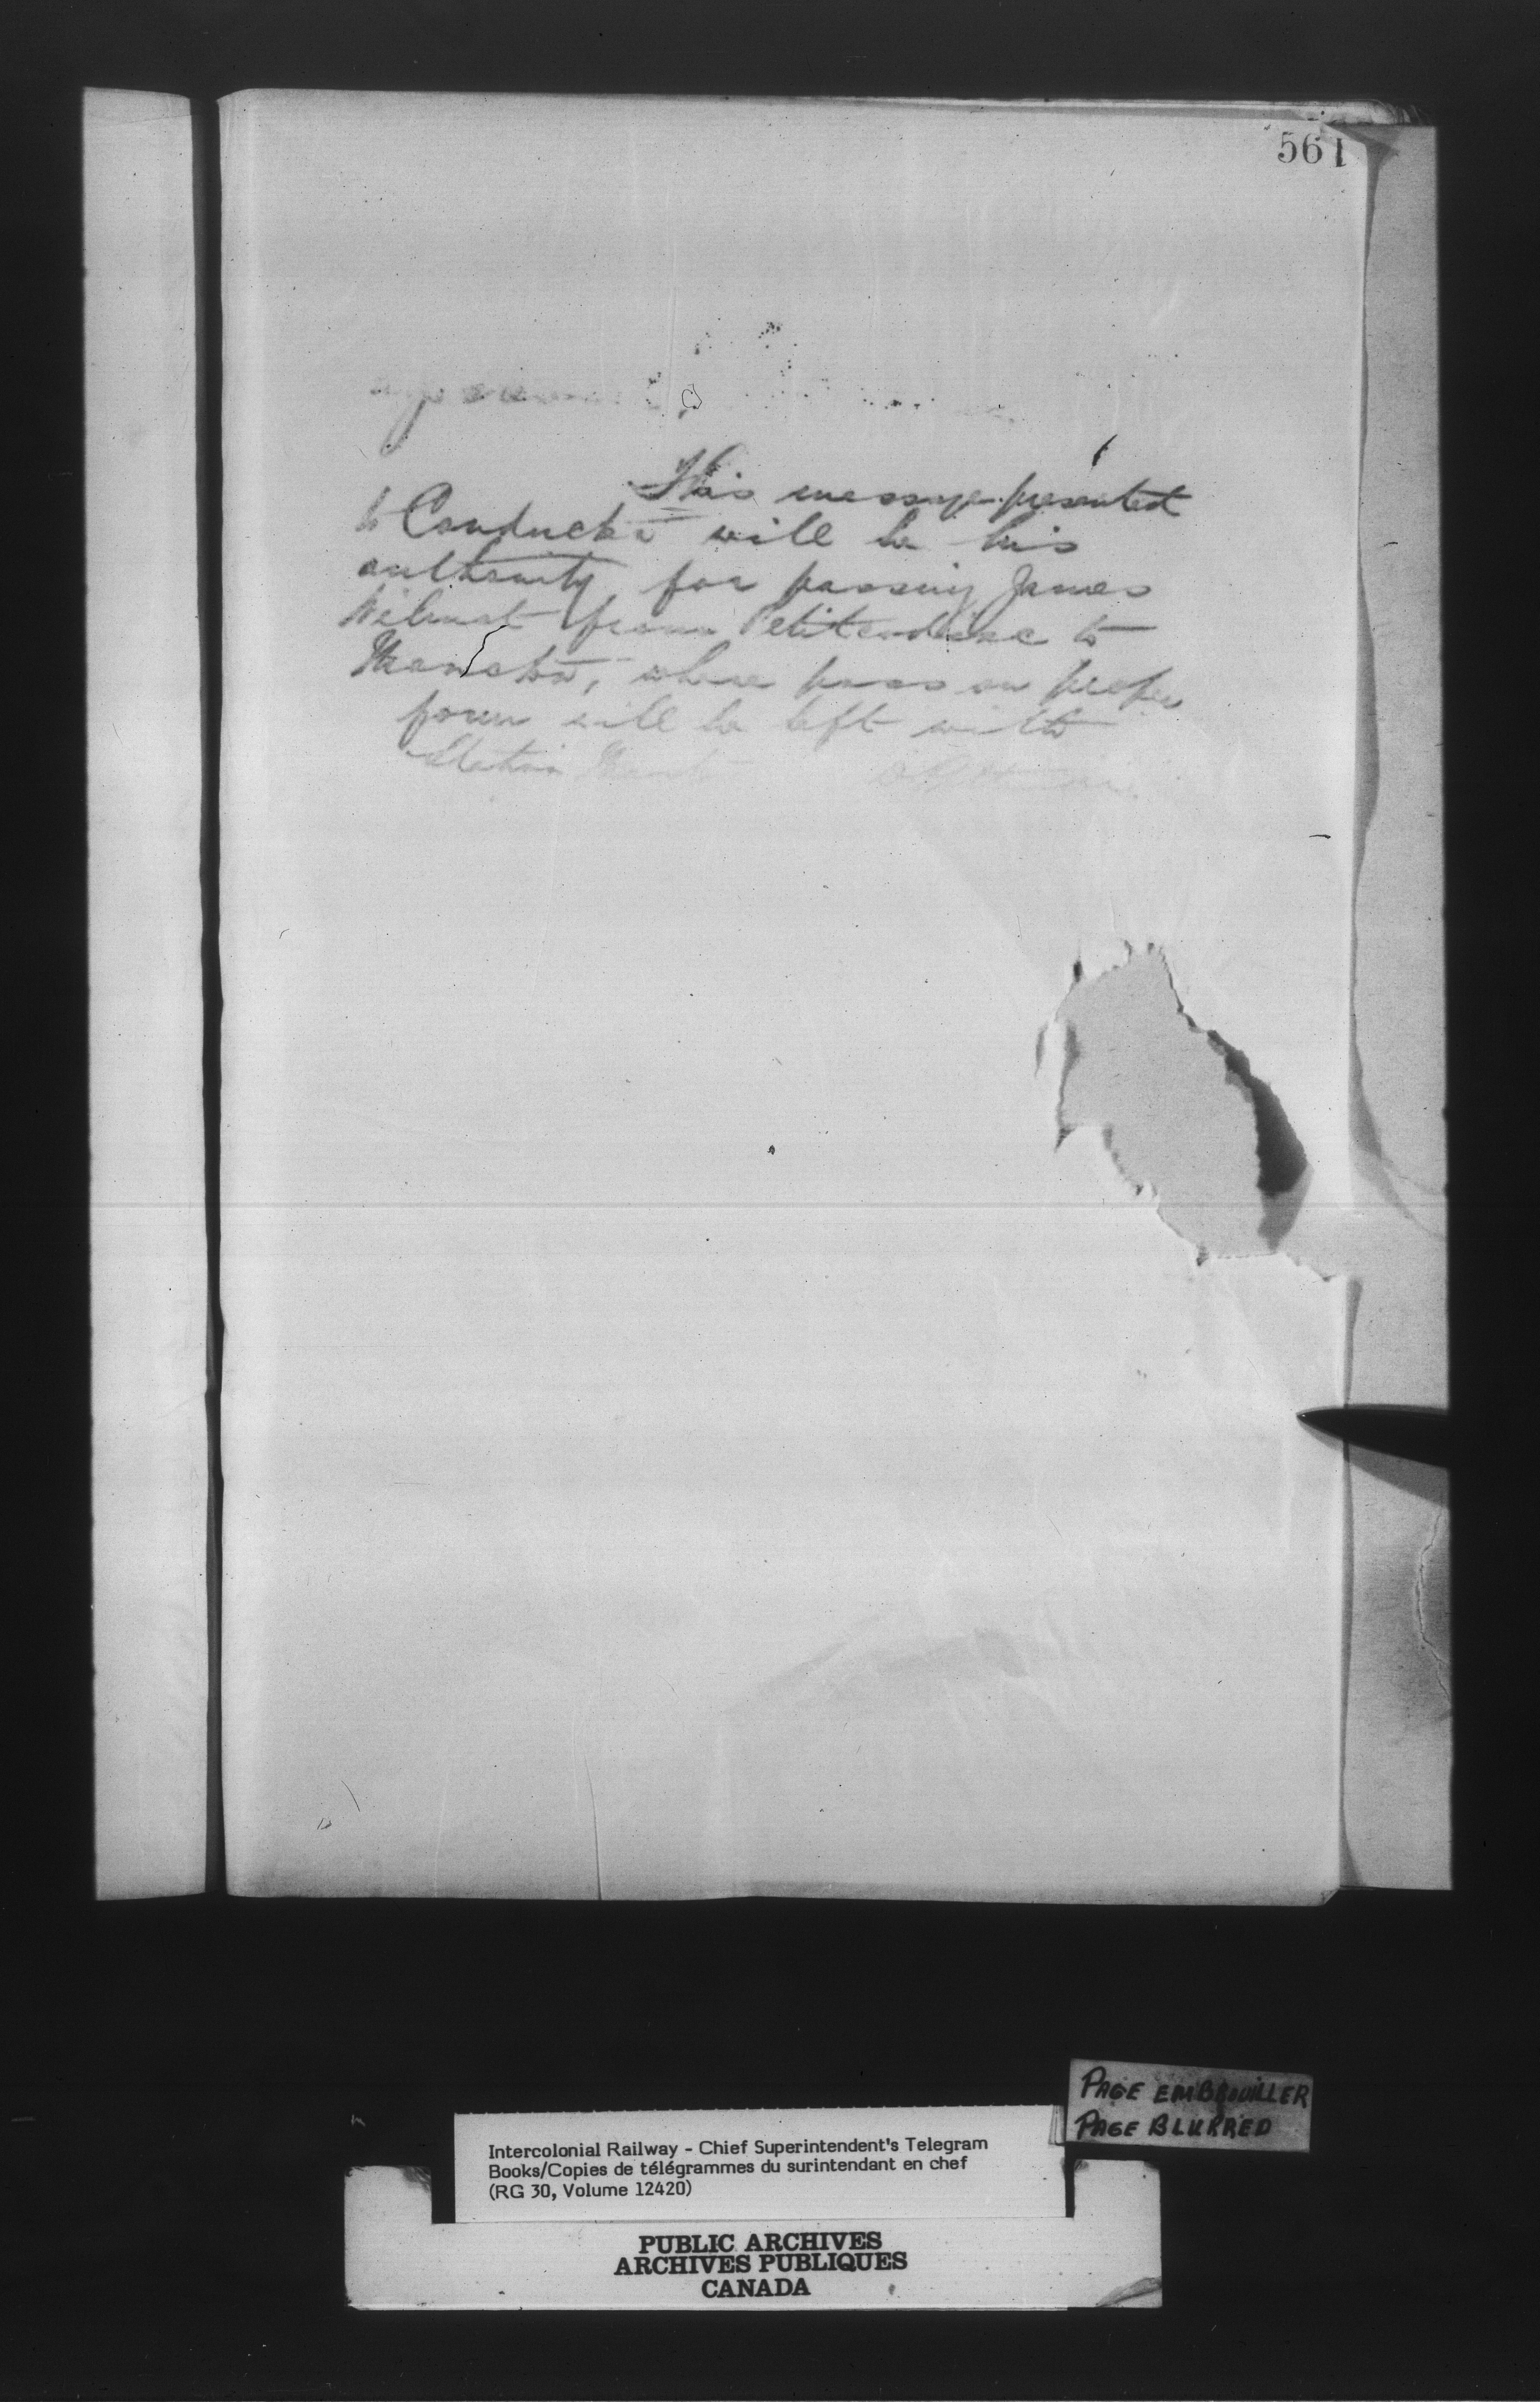 561
This message presented
to Conductor will be his
authority for passing James
Wilmot from Petitcodiac to
Moncton, where pass on proper
form will be left with
Station
PAGE EMBROUILLER
PAGE BLURRED
Intercolonial Railway - Chief Superintendent's Telegram
Books/Copies de télégrammes du surintendant en chef
(RG 30, Volume 12420)
PUBLIC ARCHIVES
ARCHIVES PUBLIQUES
CANADA